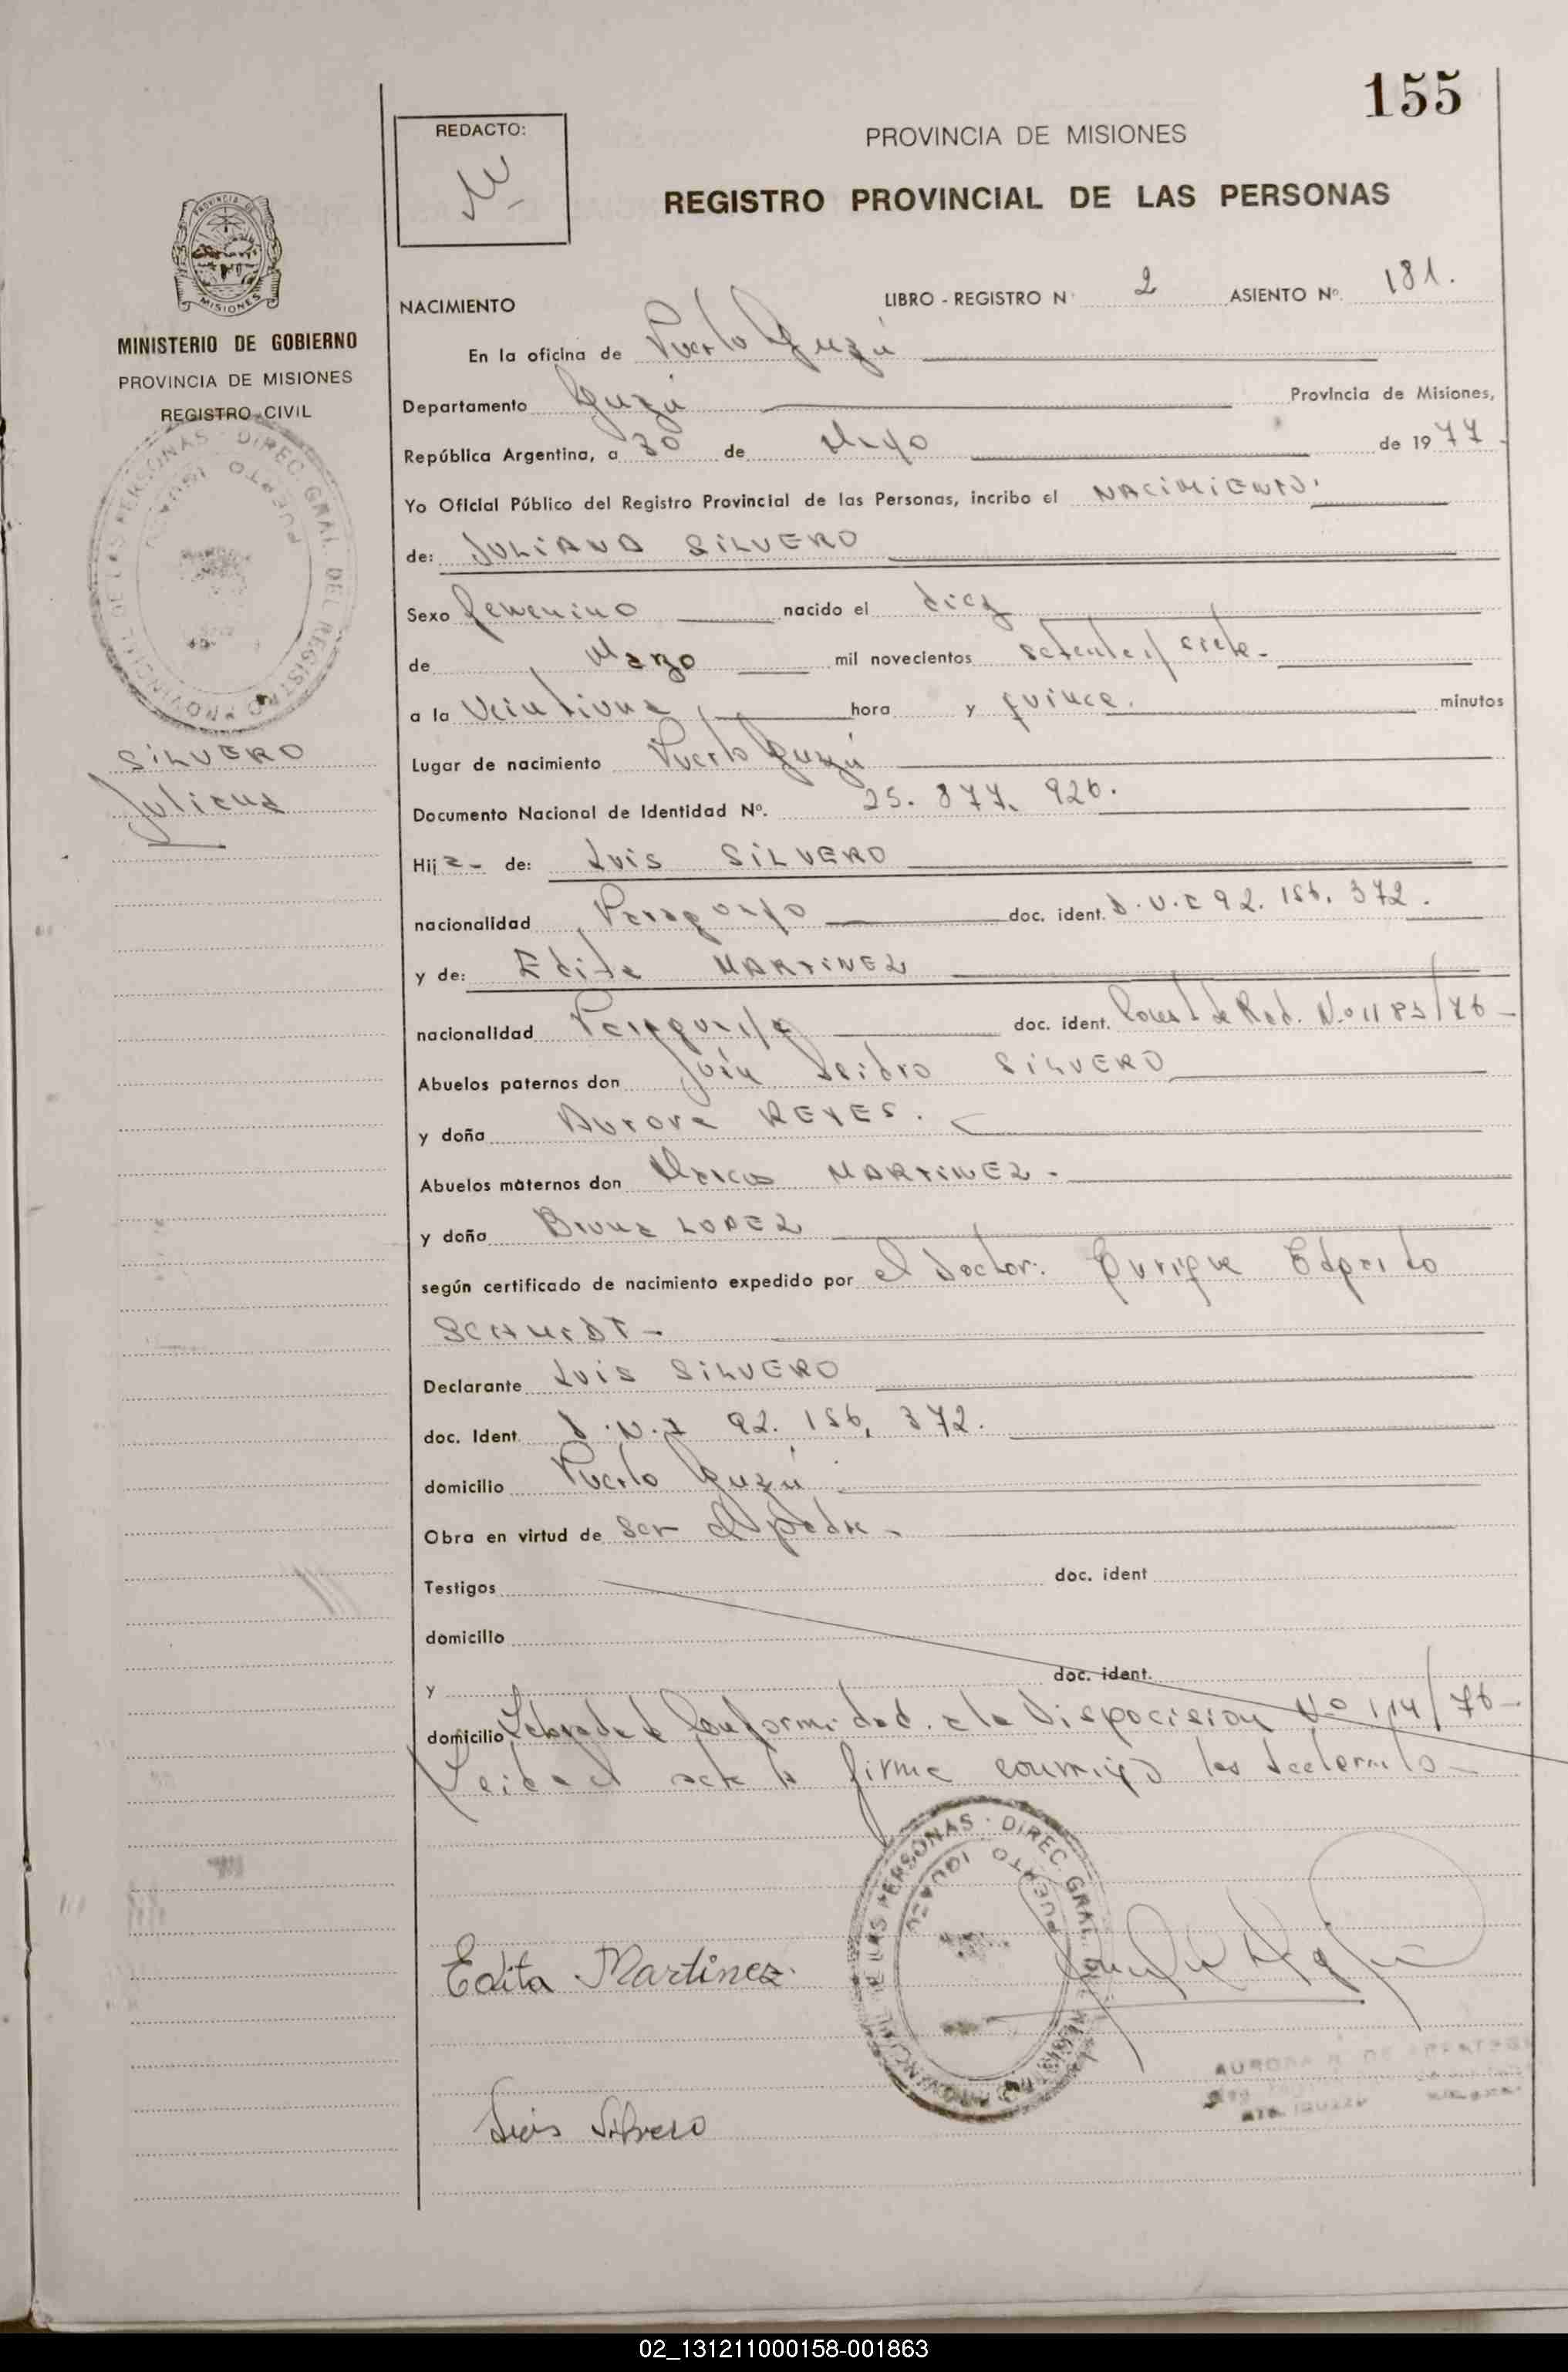 155
REDACTO:
PROVINCIA DE MISIONES
REGISTRO PROVINCIAL DE LAS PERSONAS
MISIONES
MINISTERIO DE GOBIERNO
PROVINCIA DE MISIONES
REGISTRO CIVIL
DIREC. GRAL. DEL REGISTRO PROVINCIAL DE LAS PERSONAS
PUERTO IGUAZU
SILVERO
Juliana
NACIMIENTO LIBRO - REGISTRO N 2 ASIENTO Nº. 181.
En la oficina de Puerto Iguazú
Departamento Iguazú Provincia de Misiones,
República Argentina, a 30 de Mayo de 1977
Yo Oficial Público del Registro Provincial de las Personas, incribo el NACIMIENTO.
de: JULIANA SILVERO
Sexo femenino nacido el diez
de Marzo mil novecientos setenta y siete-
a la Veintiuna hora y quince. minutos
Lugar de nacimiento Puerto Iguazú
Documento Nacional de Identidad Nº. 25. 877. 926.
Hij a- de: Luis SILVERO
nacionalidad Paraguayo doc. ident. D.N.I 92. 156. 372.
y de: Edita MARTINEZ
nacionalidad Paraguaya doc. ident. Const de Rad. Nº 1183/76-
Abuelos paternos don Juan Isidro SILVERO
y doña Aurora REYES.
Abuelos maternos don Marcos MARTINEZ-
y doña Bruna LOPEZ
según certificado de nacimiento expedido por el Doctor: Enrique Edgardo
SCHMIDT-
Declarante Luis SILVERO
doc. Ident. D.N.I 92. 156. 372.
domicilio Puerto Iguazú
Obra en virtud de ser el padre-
Testigos doc. ident
domicilio
y doc. ident.
domicilio Labrada de Conformidad a la Disposicion Nº 114/76-
Leida el acta la firma conmigo los declarante-
DIREC. GRAL. DEL REGISTRO PROVINCIAL DE LAS PERSONAS
PUERTO IGUAZU
Edita Martinez.
AURORA
Luis Silvero
02_131211000158-001863